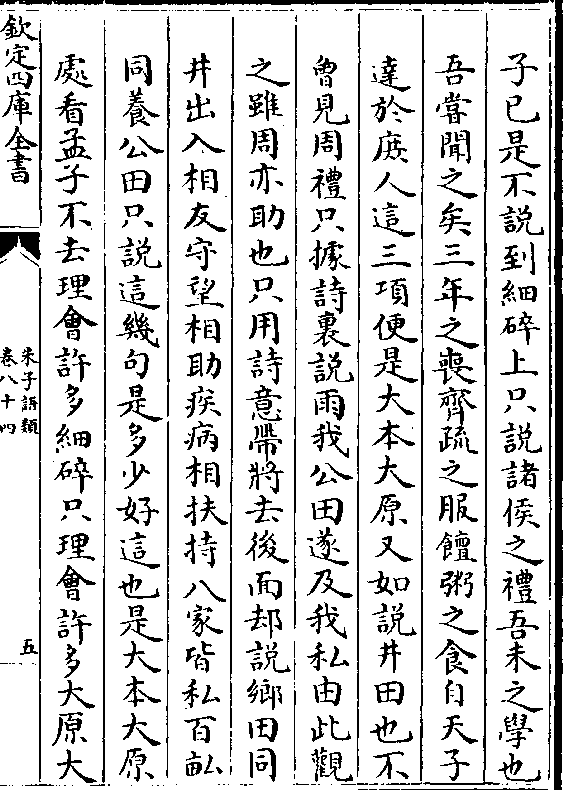 子已是不說到細碎上只說諸侯之禮吾未之學也
吾嘗聞之矣三年之喪齊疏之服饘粥之食自天子
達於庶人這三項便是大本大原又如說井田也不
曾見周禮只據詩裏說雨我公田遂及我私由此觀
之雖周亦助也只用詩意帶將去後面却說鄉田同
井出入相友守望相助疾病相扶持八家皆私百畝
同養公田只說這幾句是多少好這也是大本大原
處看孟子不去理會許多細碎只理會許多大原大
欽定四庫全書
朱子語類
卷八十四
五